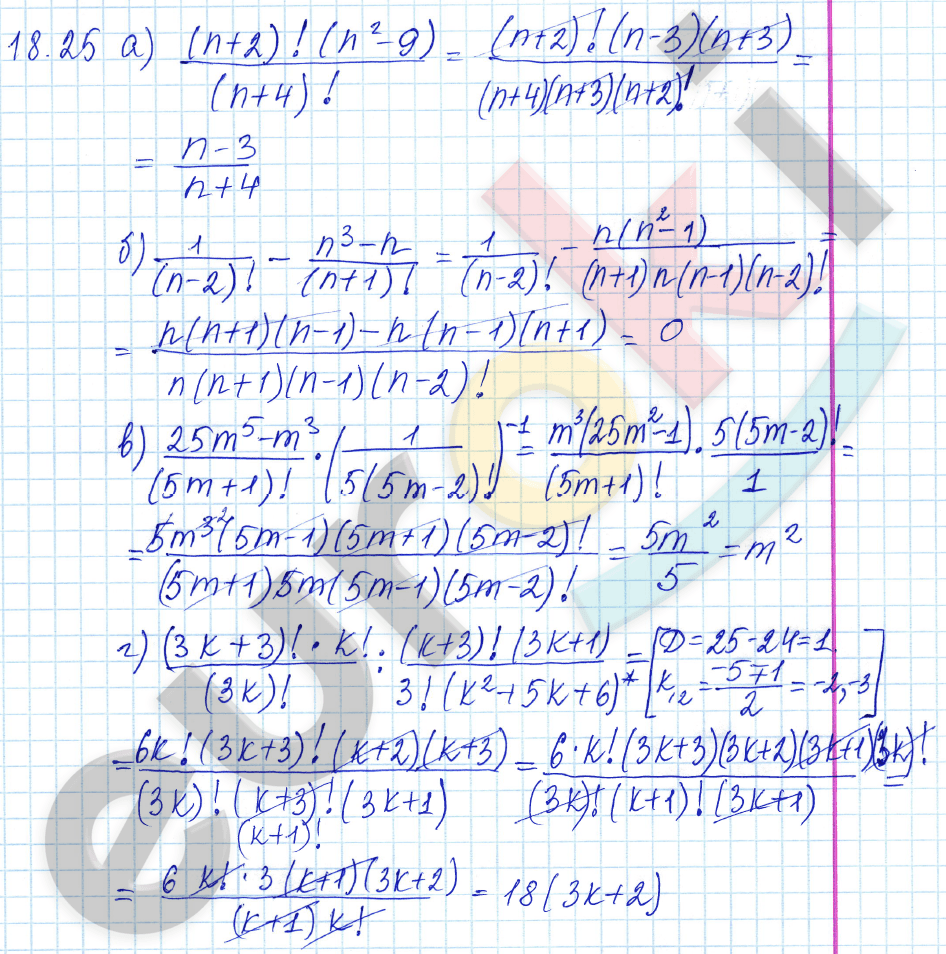 18.25 а) (n+2)!(n²-9)/(n+4)! = (n+2)!(n-3)(n+3)/(n+4)(n+3)(n+2)! =
= n-3/n+4
б) 1/(n-2)! - n³-n/(n+1)! = 1/(n-2)! - n(n²-1)/(n+1)n(n-1)(n-2)! =
= n(n+1)(n-1)-n(n-1)(n+1)/n(n+1)(n-1)(n-2)! = 0
в) 25m⁵-m³/(5m+1)! · (1/5(5m-2)!)⁻¹ = m³(25m²-1)/(5m+1)! · 5(5m-2)!/1 =
= 5m³²(5m-1)(5m+1)(5m-2)!/(5m+1)5m(5m-1)(5m-2)! = 5m²/5 = m²
г) (3k+3)!·k!/(3k)! : (k+3)!(3k+1)/3!(k²+5k+6)* = [D=25-24=1 k₁,₂ = -5∓1/2 = -2,-3]
= 6k!(3k+3)!(k+2)(k+3)/(3k)!(k+3)!(3k+1) = 6·k!(3k+3)(3k+2)(3k+1)(3k)!/(3k)!(k+1)!(3k+1) =
(k+1)!
= 6 k!·3(k+1)(3k+2)/(k+1)k! = 18(3k+2)
euroki